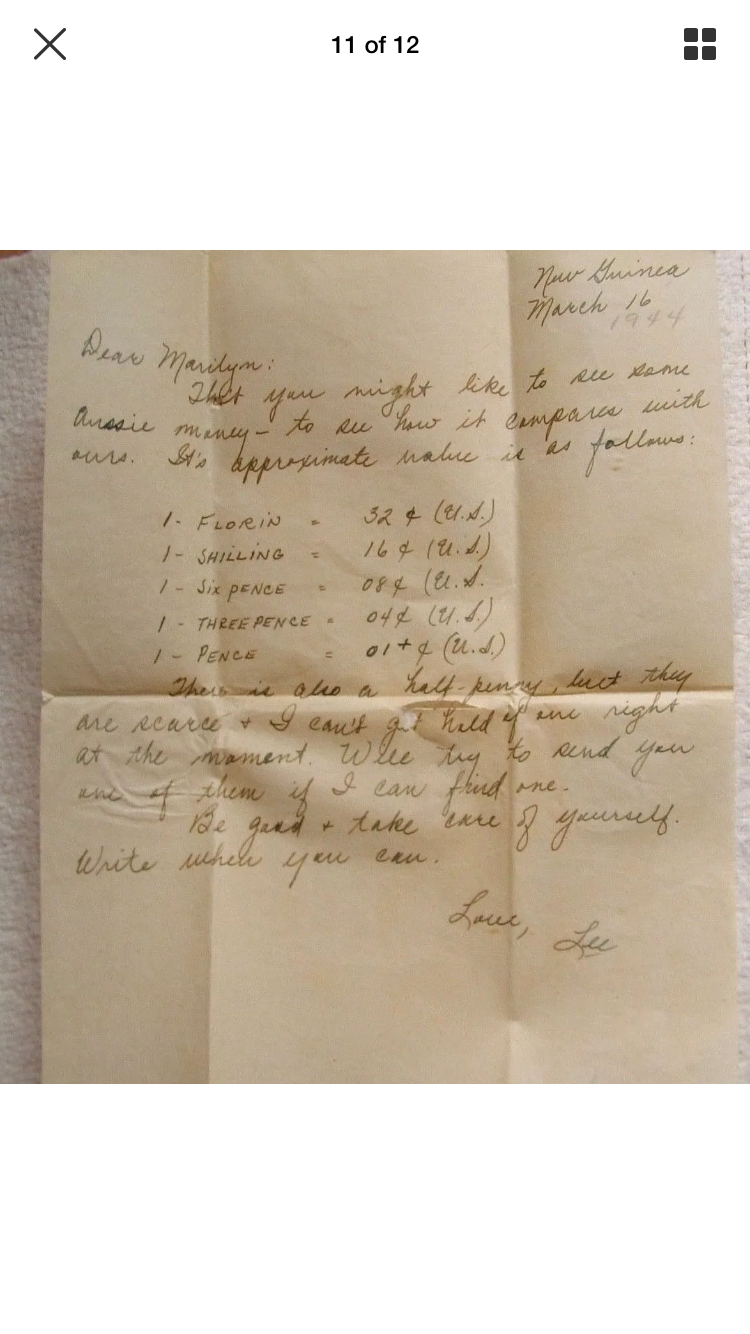 11 of 12
New Guinea
March 16
1944
Dear Marilyn:
That you might like to see some
Aussie money - to see how it compares with
ours. It's approximate value is as follows:
1 - FLORIN = 32 ¢ (U.S.)
1 - SHILLING = 16 ¢ (U.S.)
1 - SIX PENCE = 08¢ (U.S.
1 - THREEPENCE = 04¢ (U.S.)
1 - PENCE = 01+ ¢ (U.S.)
There is also a half-penny, but they
are scarce + I can't get hold of one right
at the moment. Will try to send you
one of them if I can find one.
Be good + take care of yourself.
Write when you can.
Love,
Lee